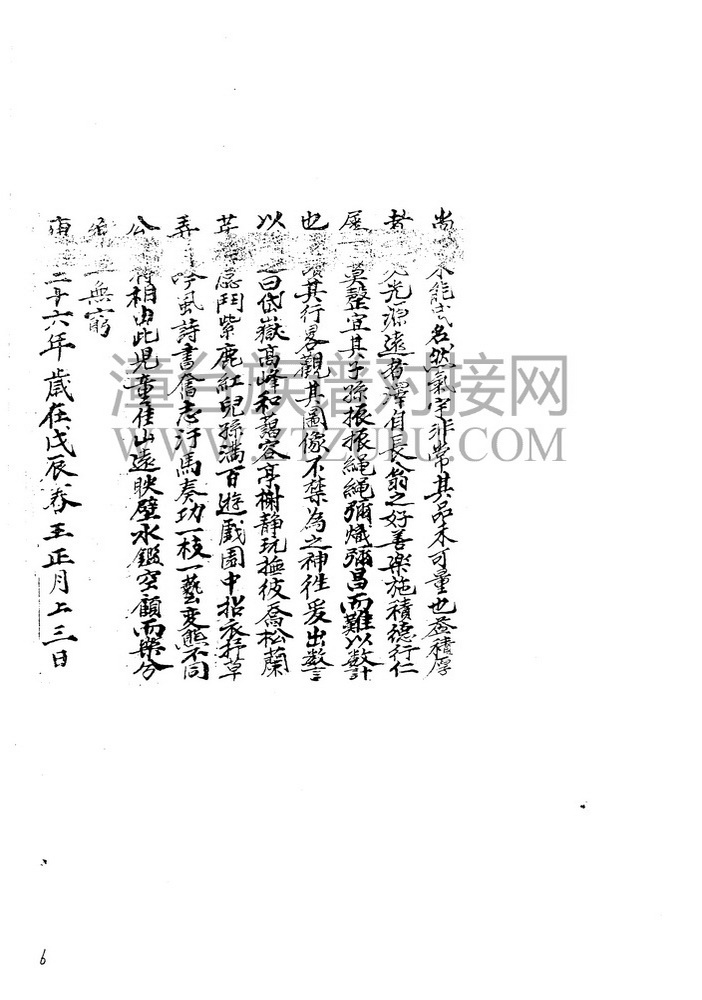 尚 未能成名然氣宇非常其品未可量也葢積厚
者 光源遠者澤自長翁之好善樂施積德行仁
莫罄宜其子孫振振繩繩彌熾彌昌而難以數計
也 其行畧觀其圖像不禁為之神往爰出數言
以 曰岱嶽高峰和藹容亭榭靜玩撫彼喬松蘭
鬥紫鹿紅兒孫滿百遊戲園中招衣抒草
弄 吟風詩書奮志汗馬奏功一枝一藝变態不同
公 將相由此兒童佳山遠映壁水鑑空顧而樂兮
無窮
二十六年歲在戊辰春王正月上三日
漳台族谱对接网
WWW.ZTZUPU.COM
6